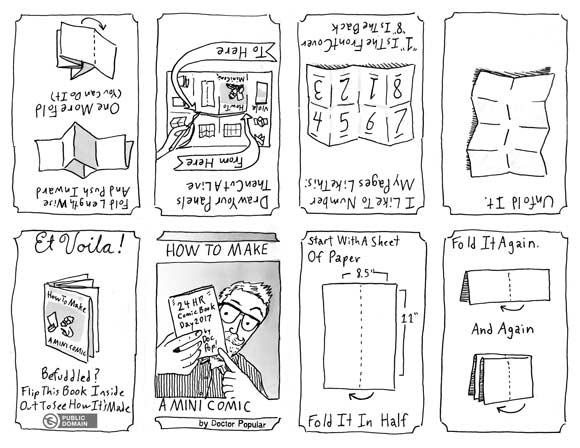 Fold Lengthwise
And Push Inward
One More Fold
(You Can Do It)
Draw Your Panels
Then Cut A Line
From Here
How To
Voila
To Here
I Like To Number
My Pages Like This:
7 6 5 4
8 1 2 3
"1" Is The Front Cover
"8" Is The Back
Unfold It.
Et Voila!
How To Make
A MINI COMIC
Befuddled?
Flip This Book Inside
Out To See How It's Made
PUBLIC
DOMAIN
HOW TO MAKE
"24 HR
Comic Book
Day 2017"
by
Doc
Pop!
A MINI COMIC
by Doctor Popular
Start With A Sheet
Of Paper
8.5"
11"
Fold It In Half
Fold It Again.
And Again